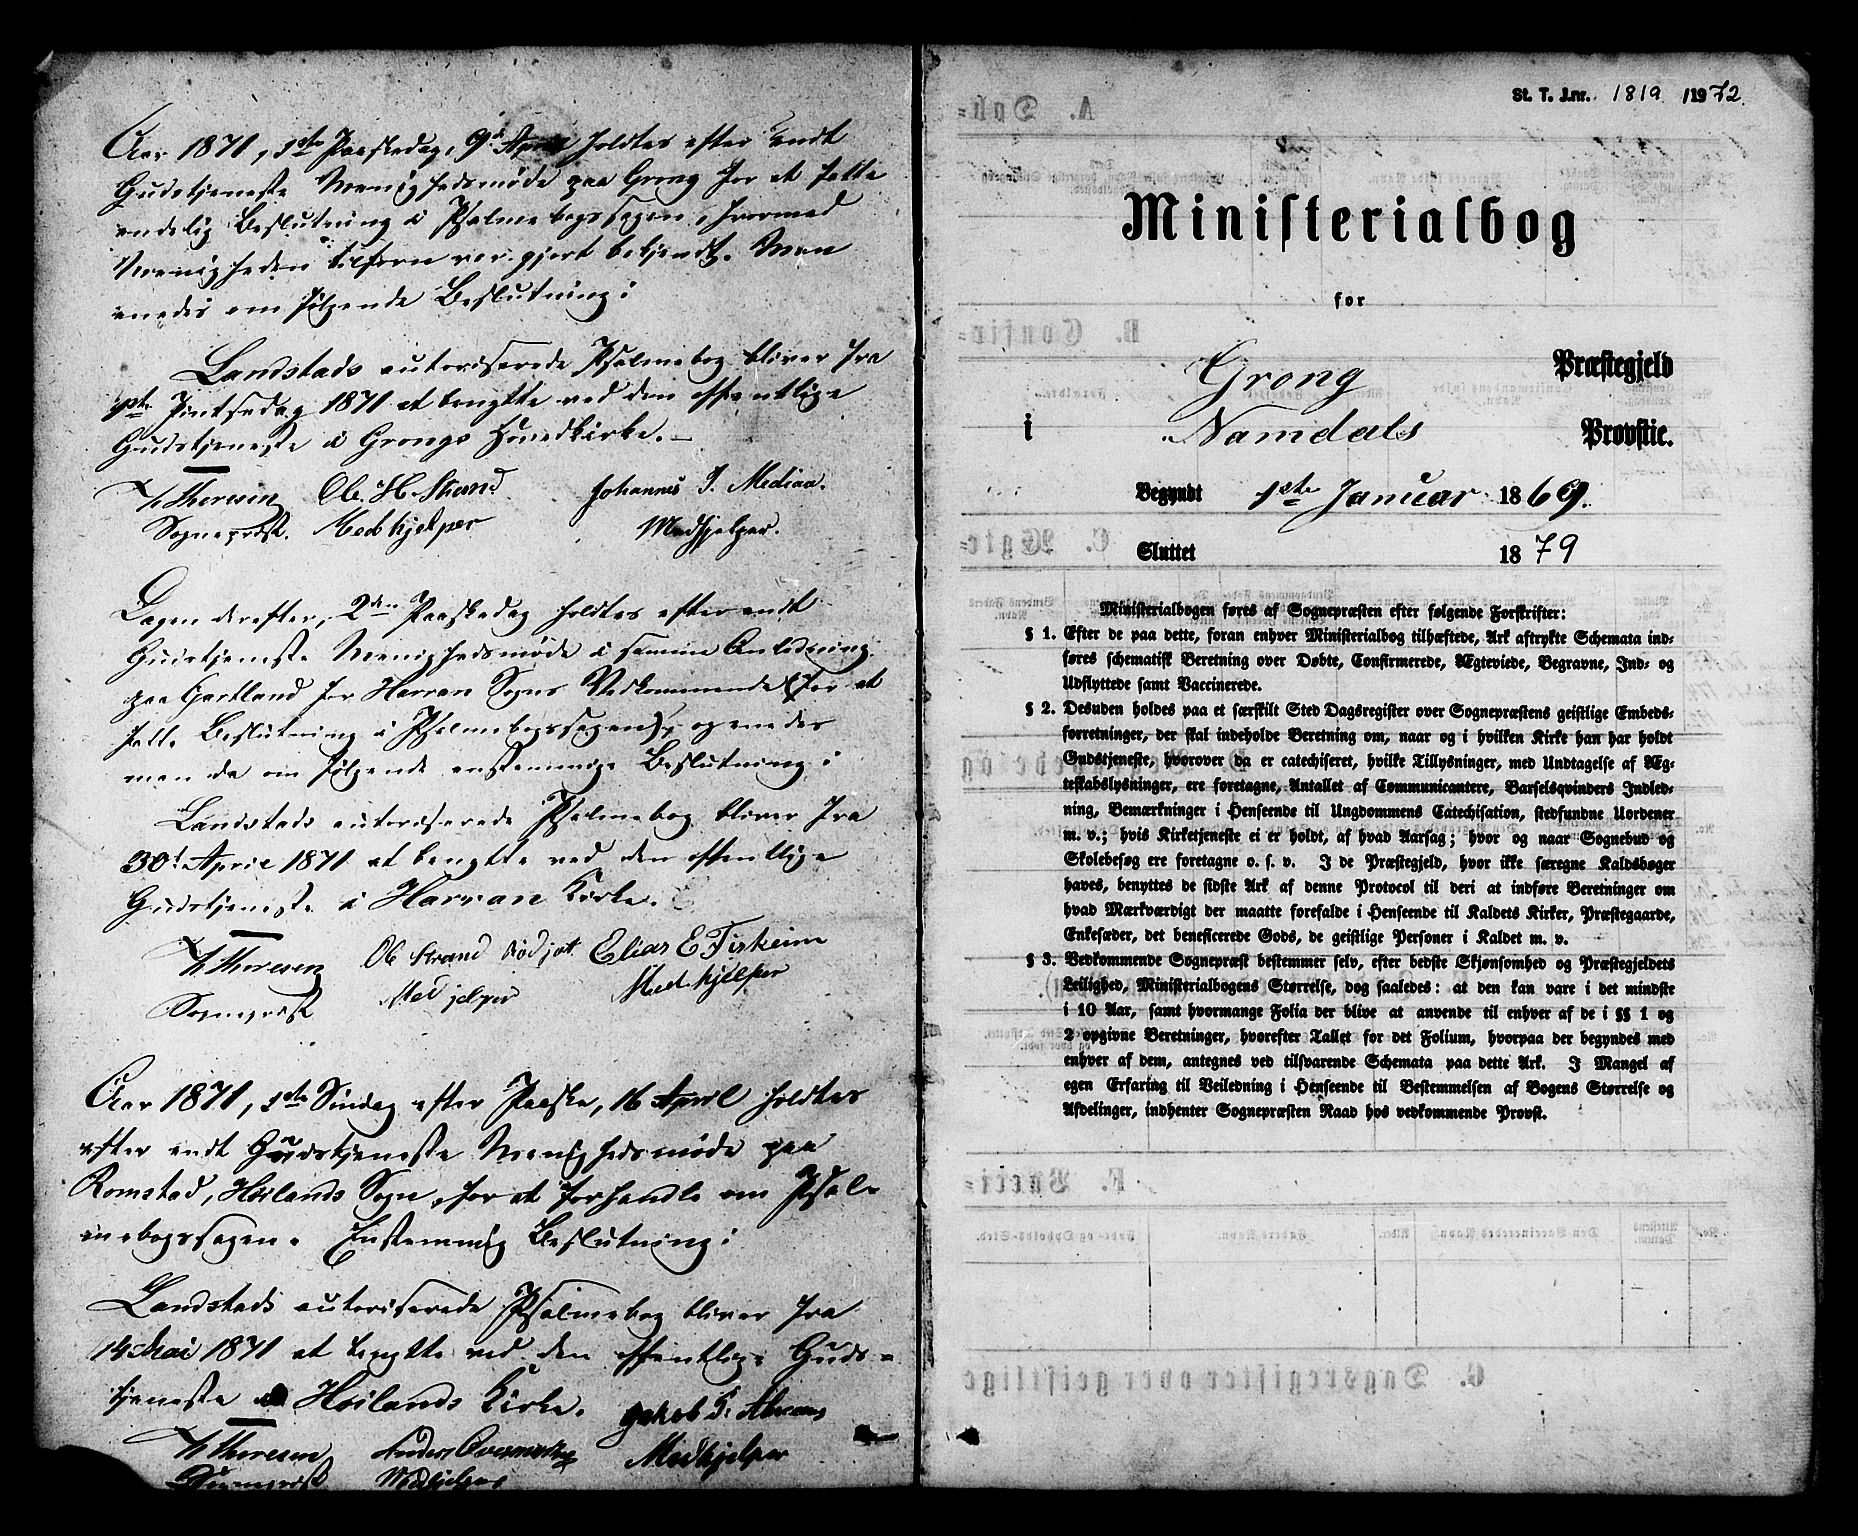 Aar 1871, 1ste Paaskedag, 9de April holdtes efter endt
Gudstjeneste Menighedsmøde paa Grong for at fatte
endelig Beslutning i Psalmebogssagen, hvormed
Menigheden tilforn var gjort bekjendt. Man
enedes om følgende Beslutning:
Landstads autoriserede Psalmebog bliver fra
1ste Pintsedag 1871 at benytte ved den offentlige
Gudstjeneste i Grongs Hovedkirke. –
Thoresen Ole. H. Strand Johannes J. Mediaa.
Sogneprest. Medhjelper Medhjelper.
Dagen derefter, 2den Paaskedag holdtes efter endt
Gudstjeneste Menighedsmøde i samme Anledning
paa Gartland for Harran Sogns Vedkommende (for at
fatte Beslutning i Psalmebogssagen), og enedes
man da om følgende enstemmige Beslutning:
Landstads autoriserede Psalmebog bliver fra
30te April 1871 at benytte ved den offentlige
Gudstjeneste i Harran Kirke.
Thoresen Ole Strand Elias E Fiskeim
Sogneprest Medhjelper Medhjelper
Aar 1871, 1ste Søndag efter Paaske, 16 April holdtes
efter endt Gudstjeneste Menighedsmøde paa
Romstad, Høilands Sogn, for at forhandle om Psal-
mebogssagen. Enstemmig Beslutning:
Landstads autoriserede Psalmebog bliver fra
14 Mai 1871 at benytte ved den offentlige Guds-
tjeneste i Høilands Kirke.
Jakob
Thoresen Anders Medhjelper
Sogneprest Medhjelper
St. T. J.nr. 1819 /1972.
Ministerialbog
for
Grong Præstegjeld
i Namdals Provstie.
Begyndt 1ste Januar 1869.
Sluttet 1879
Ministerialbogen føres af Sognepræsten efter følgende Forskrifter:
§ 1. Efter de paa dette, foran enhver Ministerialbog tilhæftede, Ark aftrykte Schemata ind-
føres schematisk Beretning over Døbte, Confirmerede, Ægteviede, Begravne, Ind- og
Udflyttede samt Vaccinerede.
§ 2. Desuden holdes paa et særskilt Sted Dagsregister over Sognepræstens geistlige Embeds-
forretninger, der skal indeholde Beretning om, naar og i hvilken Kirke han har holdt
Gudstjeneste, hvorover da er catechiseret, hvilke Tillysninger, med Undtagelse af Æg-
teskabslysninger, ere foretagne, Antallet af Communicantere, Barselsqvinders Indled-
ning, Bemærkninger i Henseende til Ungdommens Catechisation, stedfundne Uordener
m. v.; hvis Kirketjeneste ei er holdt, af hvad Aarsag; hvor og naar Sognebud og
Skolebesøg ere foretagne o. s. v. I de Præstegjeld, hvor ikke særegne Kaldsbøger
haves, benyttes de sidste Ark af denne Protocol til deri at indføre Beretninger om
hvad Mærkværdigt der maatte forefalde i Henseende til Kaldets Kirker, Præstegaarde,
Enkesæder, det beneficerede Gods, de geistlige Personer i Kaldet m. v.
§ 3. Vedkommende Sognepræst bestemmer selv, efter bedste Skjønsomhed og Præstegjeldets
Leilighed, Ministerialbogens Størrelse, dog saaledes: at den kan vare i det mindste
i 10 Aar, samt hvormange Folia der blive at anvende til enhver af de i §§ 1 og
2 opgivne Beretninger, hvorefter Tallet for det Folium, hvorpaa der begyndes med
enhver af dem, antegnes ved tilsvarende Schemata paa dette Ark. I Mangel af
egen Erfaring til Veiledning i Henseende til Bestemmelsen af Bogens Størrelse og
Afdelinger, indhenter Sognepræsten Raad hos vedkommende Provst.